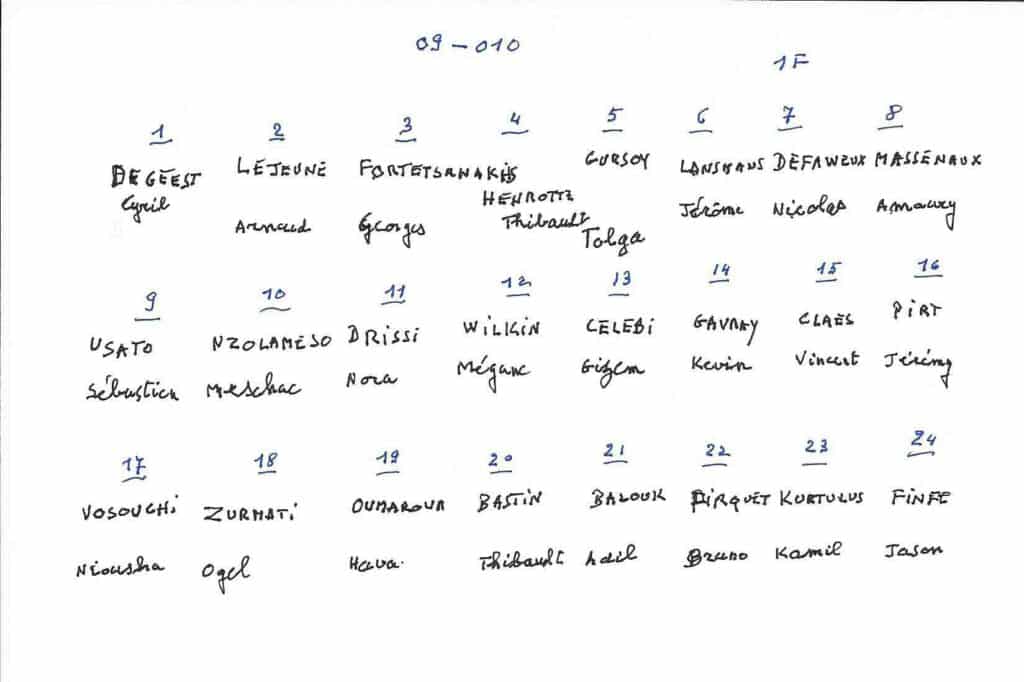 09-010
1F
1 2 3 4 5 6 7 8
DEGEEST LEJEUNE FORTETSANAKIS HENROTTE GURSOY LANSMANS DEFAWEUX MASSENAUX
Cyril Arnaud Georges Thibault Tolga Jérôme Nicolas Amaury
9 10 11 12 13 14 15 16
USATO NZOLAMESO DRISSI WILKIN CELEBI GAVRAY CLAES PIRT
Sébastien Meschac Nora Mégane Gizem Kevin Vincent Jérémy
17 18 19 20 21 22 23 24
VOSOUGHI ZURMATI OUMAROVA BASTIN BALOUK PIRQUET KURTULUS FINFE
Niousha Ogel Hava Thibault Adil Bruno Kamil Jason